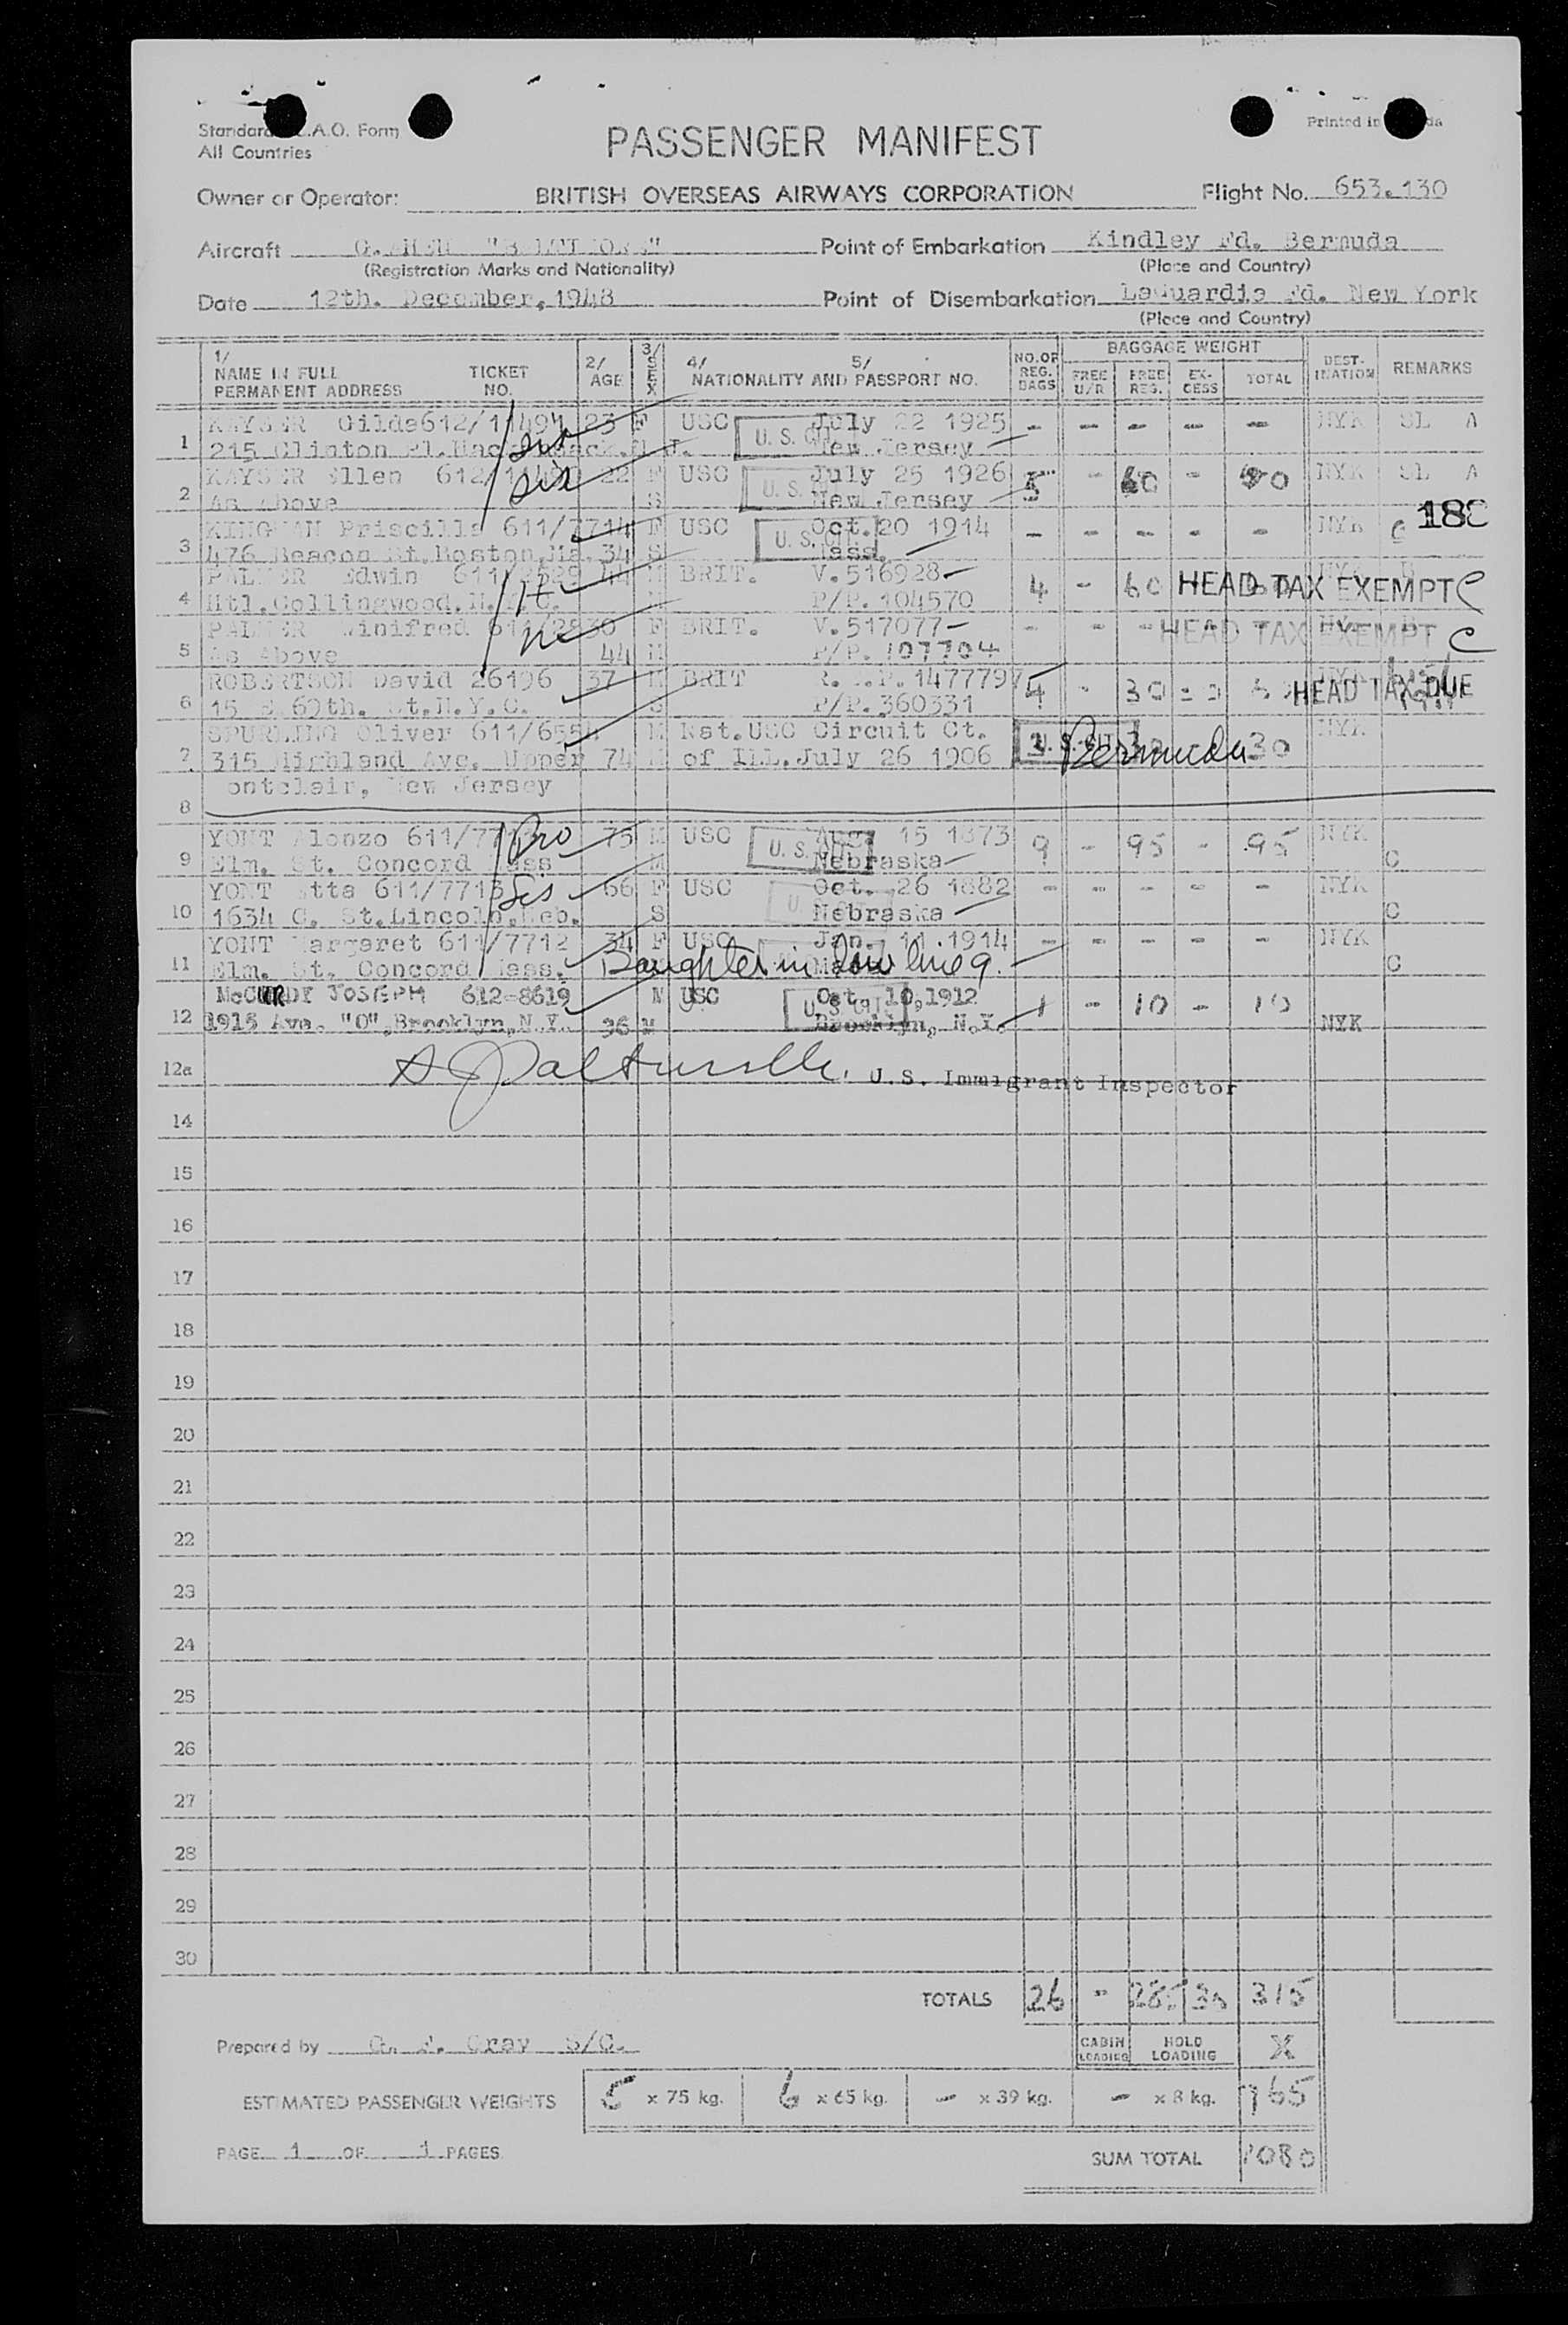 Standard A.O. Form
All Countries
Printed in
PASSENGER MANIFEST
Owner or Operator: BRITISH OVERSEAS AIRWAYS CORPORATION Flight No. 653.130
Aircraft Point of Embarkation Kindley Fd. Bermuda
(Registration Marks and Nationality) (Place and Country)
Date 12th. December, 1948 Point of Disembarkation LaGuardia Fd. New York
(Place and Country)
1/ NAME IN FULL PERMANENT ADDRESS TICKET NO. 2/ AGE 3/ SEX 4/ 5/ NATIONALITY AND PASSPORT NO. NO. OF REG. BAGS BAGGAGE WEIGHT FREE U/R FREE REG. EX-CESS TOTAL DEST-INATION REMARKS
KAYSER Gilda 612/11491 23 F USC July 22 1925 - - - - - NYK SL A
1 215 Clinton Pl. Hackensack. N J. U. S. CIT. New Jersey
KAYSER Ellen 612/ 22 F USC July 25 1926 5 - - NYK SL A
sis
2 As Above S U. S. New Jersey
KINGMAN Priscilla 611/7714 F USC Oct. 20 1914 - - - - - NYK C 188
3 476 Beacon St. Boston, Ma. 34 S U. S. CIT. Mass.
PALMER Edwin 611/2829 44 M BRIT. V. 516928 4 - 60 HEAD TAX EXEMPT C
4 Htl. Collingwood. N. Y. C. M P/P. 104570
PALMER Winifred 611/2830 F BRIT. V. 517077 - - - HEAD TAX EXEMPT C
5 As Above 44 M P/P. 107704
ROBERTSON David 26196 37 M BRIT R. .P. 1477797 4 - 30 HEAD TAX DUE
6 15 E. 69th. St. N. Y. C. S P/P. 360331
SPURLING Oliver 611/6554 M Nat. USC Circuit Ct. U. S. CIT. Bermuda 30 NYK
7 315 Highland Ave. Upper 74 M of ILL. July 26 1906
Montclair, New Jersey
8
YONT Alonzo 611/7713 Bro 75 M USC Aug. 15 1873 9 - 95 - 95 NYK
9 Elm. St. Concord Mass M U. S. CIT. Nebraska C
YONT Etta 611/7715 Sis 66 F USC Oct. 26 1882 - - - - - NYK
10 1634 G. St. Lincoln, Neb. S U. Nebraska C
YONT Margaret 611/7712 34 F USC Jan. 11. 1914 - - - - - NYK
11 Elm. St. Concord Mass. Daughter in law line 9. C
McCURDY JOSEPH 612-8619 M USC Oct. 10, 1912 1 - 10 - 10
12 1915 Ave. "O", Brooklyn, N.Y. 36 M U. S. CIT. Brooklyn, N.Y. NYK
12a U.S. Immigrant Inspector
14
15
16
17
18
19
20
21
22
23
24
25
26
27
28
29
30
TOTALS 26 - 285 30 315
Prepared by Gray S/C. CABIN LOADING HOLD LOADING X
ESTIMATED PASSENGER WEIGHTS 5 x 75 kg. 6 x 65 kg. - x 39 kg. - x 8 kg. 765
PAGE 1 OF 1 PAGES SUM TOTAL 1080